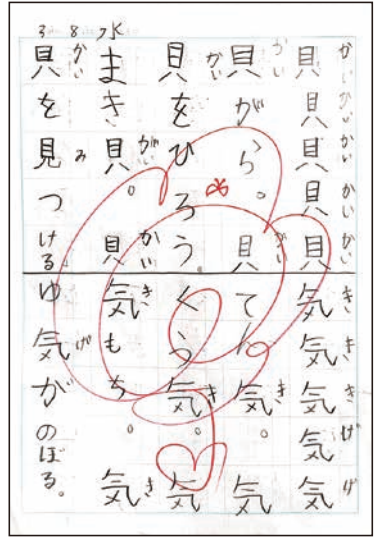 3 8 水
かい かい かい かい かい
貝貝貝貝貝
かい がい
貝がら。貝
かい
貝をひろう。
がい かい
まき貝。貝
かい み
貝を見つける
き き き げ げ
気気気気気
てん気。気
き
くう気。気
き き
気もち。気
げ
ゆ気がのぼる。